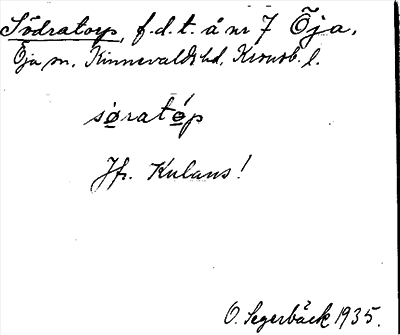 Södratorp, f.d.t. å nr 7 Öja.
Öja sn. Kinnevalds hd, Kronob. l.
søratóp
Jfr. Kulans!
O. Segerbäck 1935.